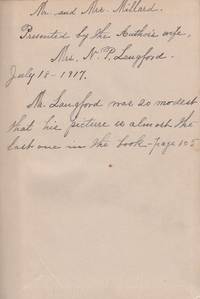 Mr. and Mrs. Millard.
Presented by the Authors wife,
Mrs. N. P. Langford.
July 18 - 1917.
Mr. Langford was so modest
that his picture is almost the
last one in the book - page 105